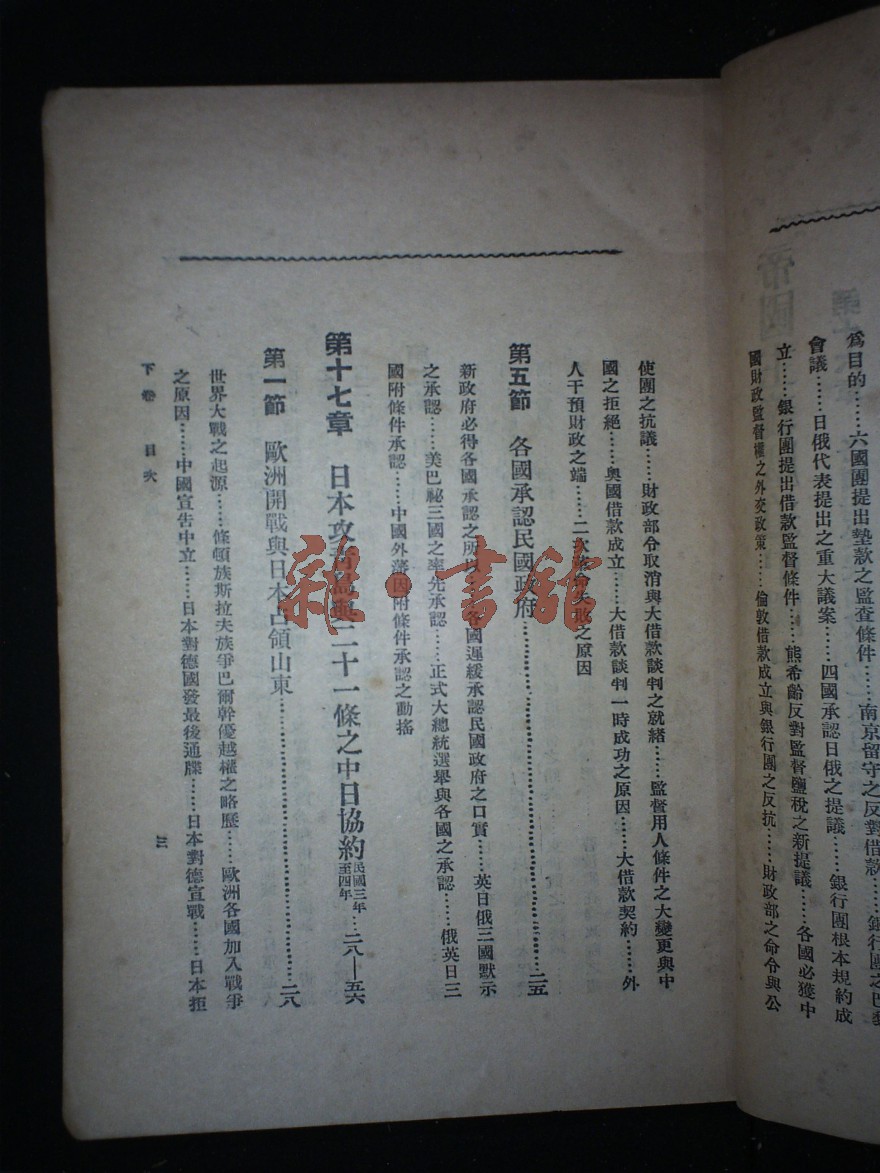 爲目的……六國團提出墊款之監查條件……南京留守之反對借款……銀行團之
會議……日俄代表提出之重大議案……四國承認日俄之提議……銀行團根本規約成
立……銀行團提出借款監督條件……熊希齡反對監督鹽稅之新提議……各國必獲中
國財政監督權之外交政策……倫敦借款成立與銀行團之反抗……財政部之命令與公
使團之抗議……財政部令取消與大借款談判之就緒……監督用人條件之大變更與中
國之拒絕……奧國借款成立……大借款談判一時成功之原因……大借款契約……外
人干預財政之端……二次革命失敗之原因
第五節 各國承認民國政府……二五
新政府必得各國承認之所以……各國遲緩承認民國政府之口實……英日俄三國默示
之承認……美巴祕三國之率先承認……正式大總統選舉與各國之承認……俄英日三
國附條件承認……中國外蒙因附條件承認之動搖
第十七章 日本攻青島與二十一條之中日協約民國三年至四年…二八—五六
第一節 歐洲開戰與日本占領山東……二八
世界大戰之起源……條頓族斯拉夫族爭巴爾幹優越權之略歷……歐洲各國加入戰爭
之原因……中國宣告中立……日本對德國發最後通牒……日本對德宣戰……日本拒
下卷 目次
三
雜·書館